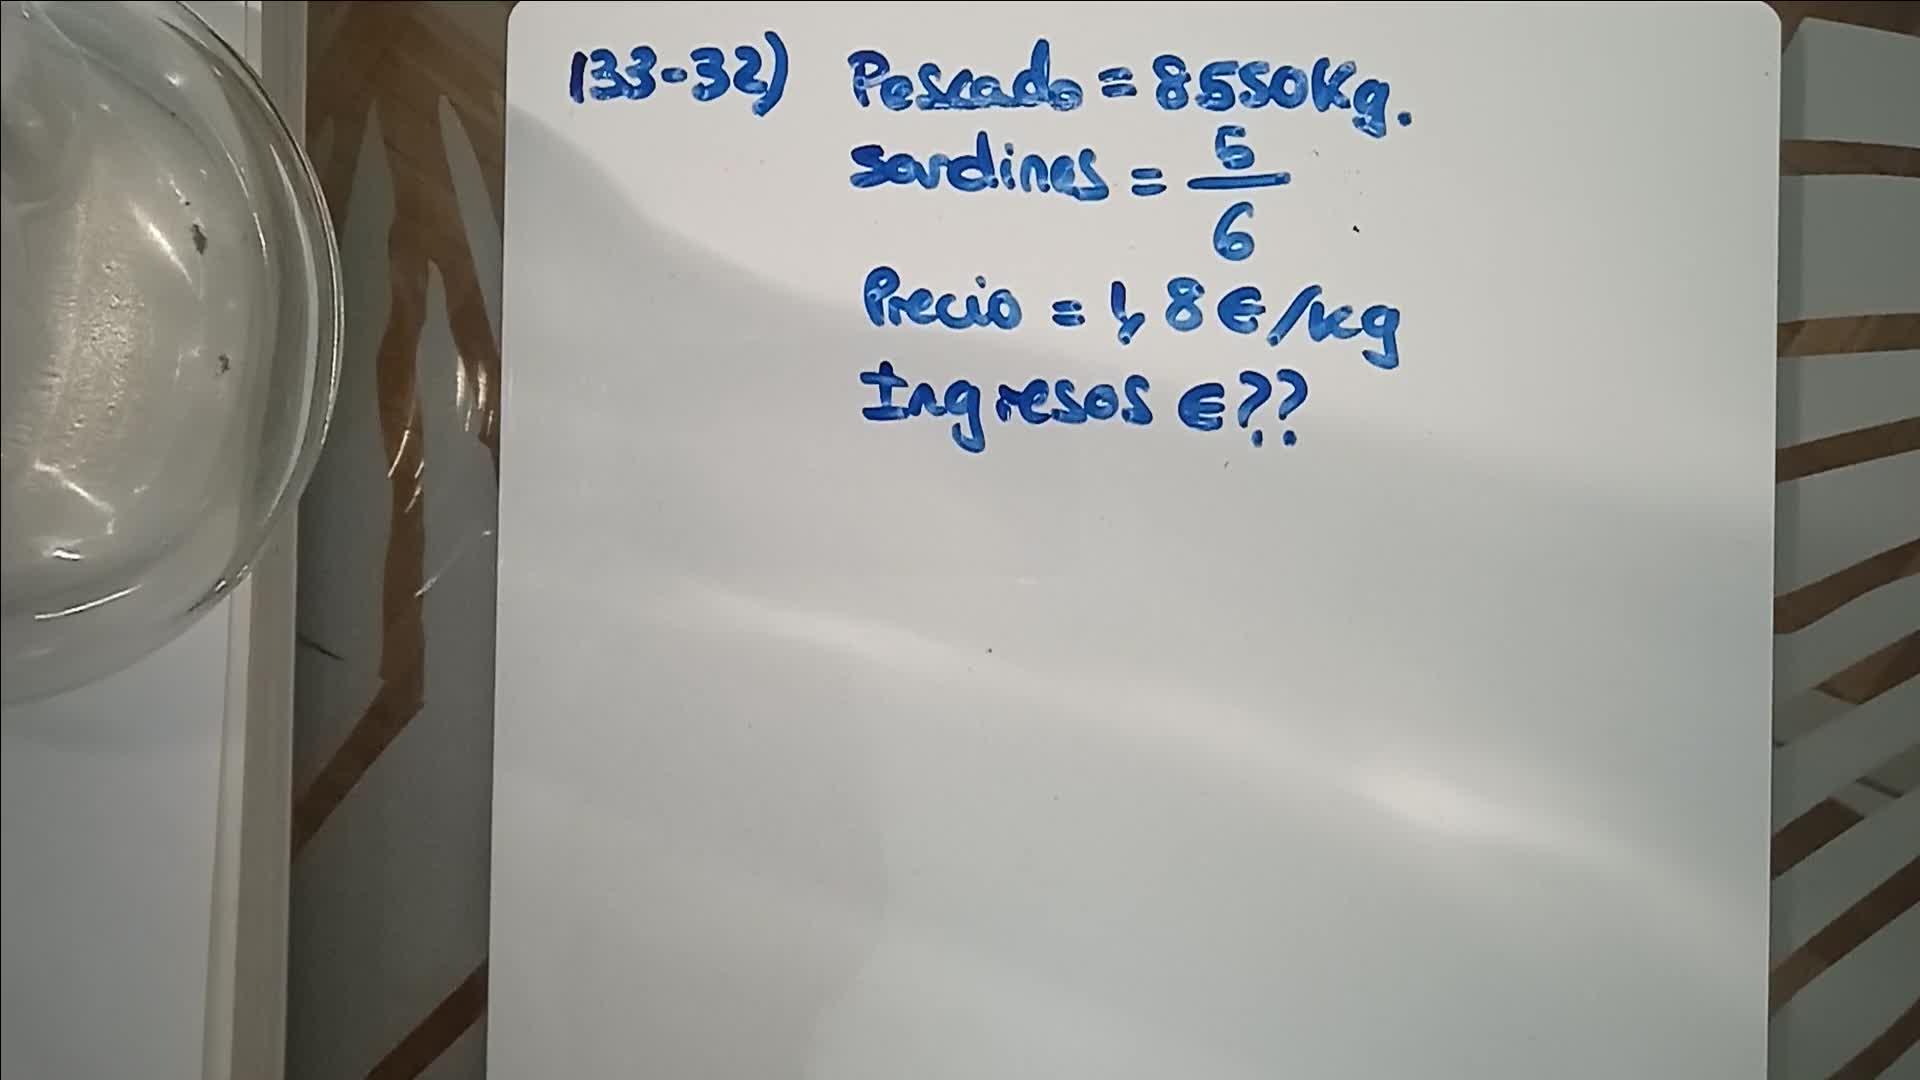 133-32) Pescado = 8550Kg.
sardinas = 5
6
Precio = 1,8€/kg
Ingresos €??